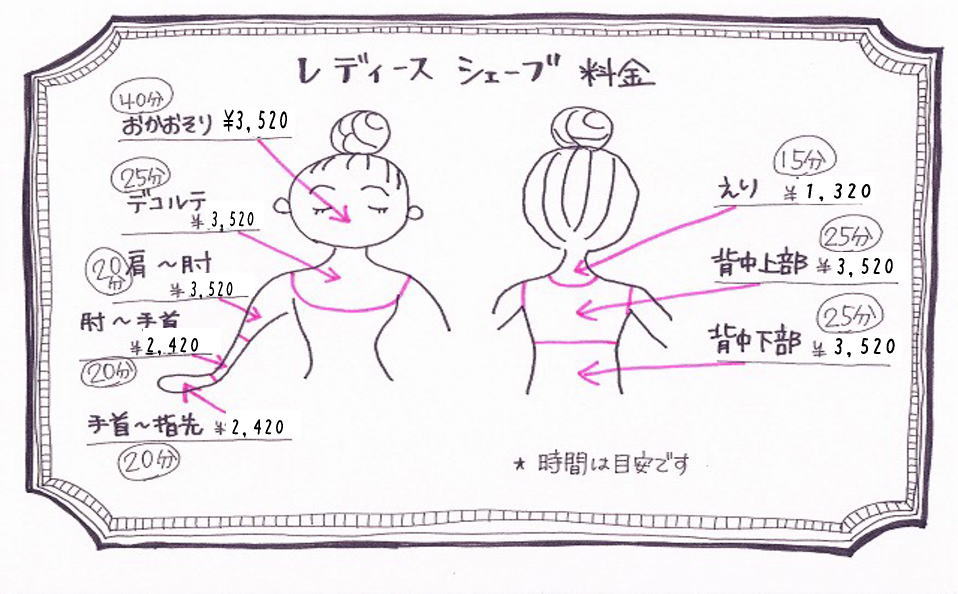 レディース シェーブ 料金
40分
おかおそり ¥3,520
25分
デコルテ
¥3,520
20分
肩～肘
¥3,520
肘～手首
¥2,420
20分
手首～指先 ¥2,420
20分
15分
えり ¥1,320
25分
背中上部 ¥3,520
25分
背中下部 ¥3,520
* 時間は目安です